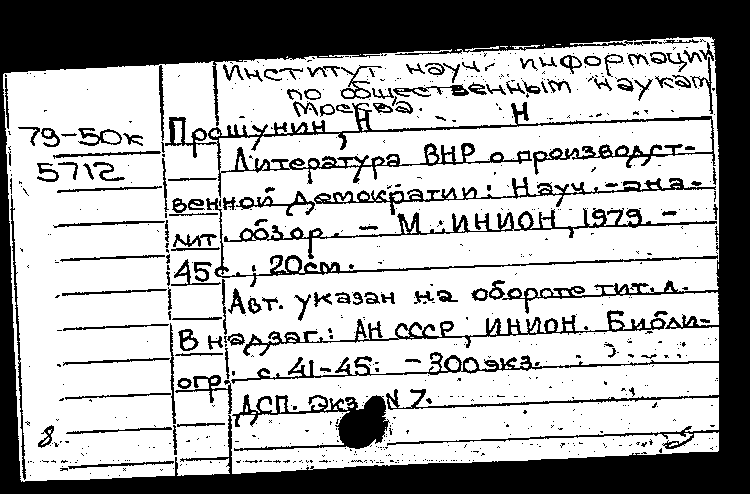 Институт науч. информации
по общественным наукам
Москва.
79-50к
5712
Прошунин, Н Н
Литература ВНР о производст-
венной демократии: Науч.-ана-
лит. обзор. - М.: ИНИОН, 1979. -
45с.; 20см.
Авт. указан на обороте тит. л.
В надзаг.: АН СССР, ИНИОН. Библи-
огр.: с. 41-45. - 300 экз.
ДСП. Экз. N 7.
8.